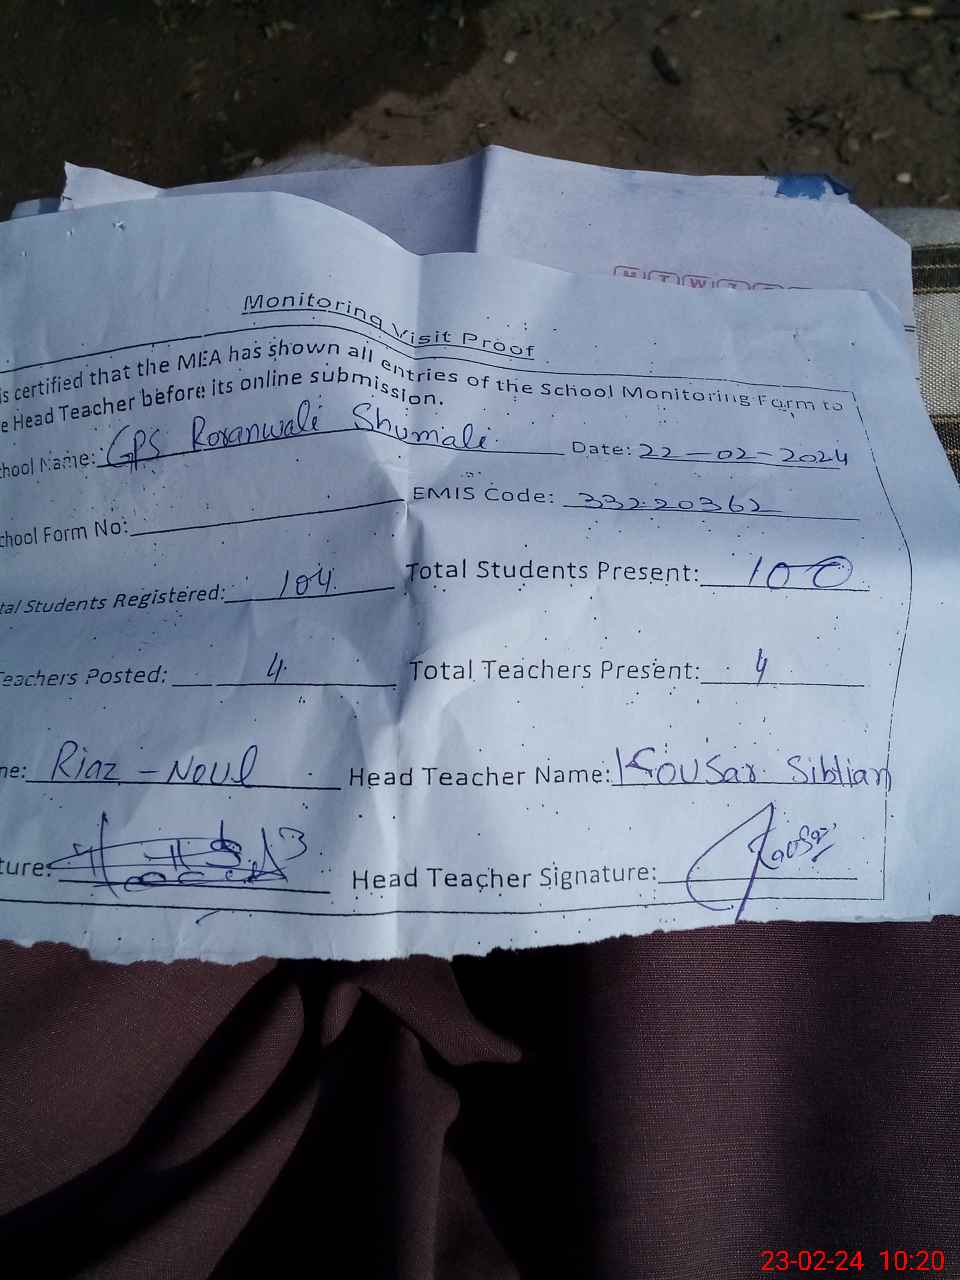 M T W T
Monitoring Visit Proof
is certified that the MEA has shown all entries of the School Monitoring Form to
e Head Teacher before its online submission.
chool Name: GPS Rosanwali Shumali Date: 22-02-2024
chool Form No: EMIS Code: 33220362
tal Students Registered: 104 Total Students Present: 100
Teachers Posted: 4 Total Teachers Present: 4
me: Riaz - Noul Head Teacher Name: Kousar Siblian
ture: Head Teacher Signature: Kousar
23-02-24 10:20